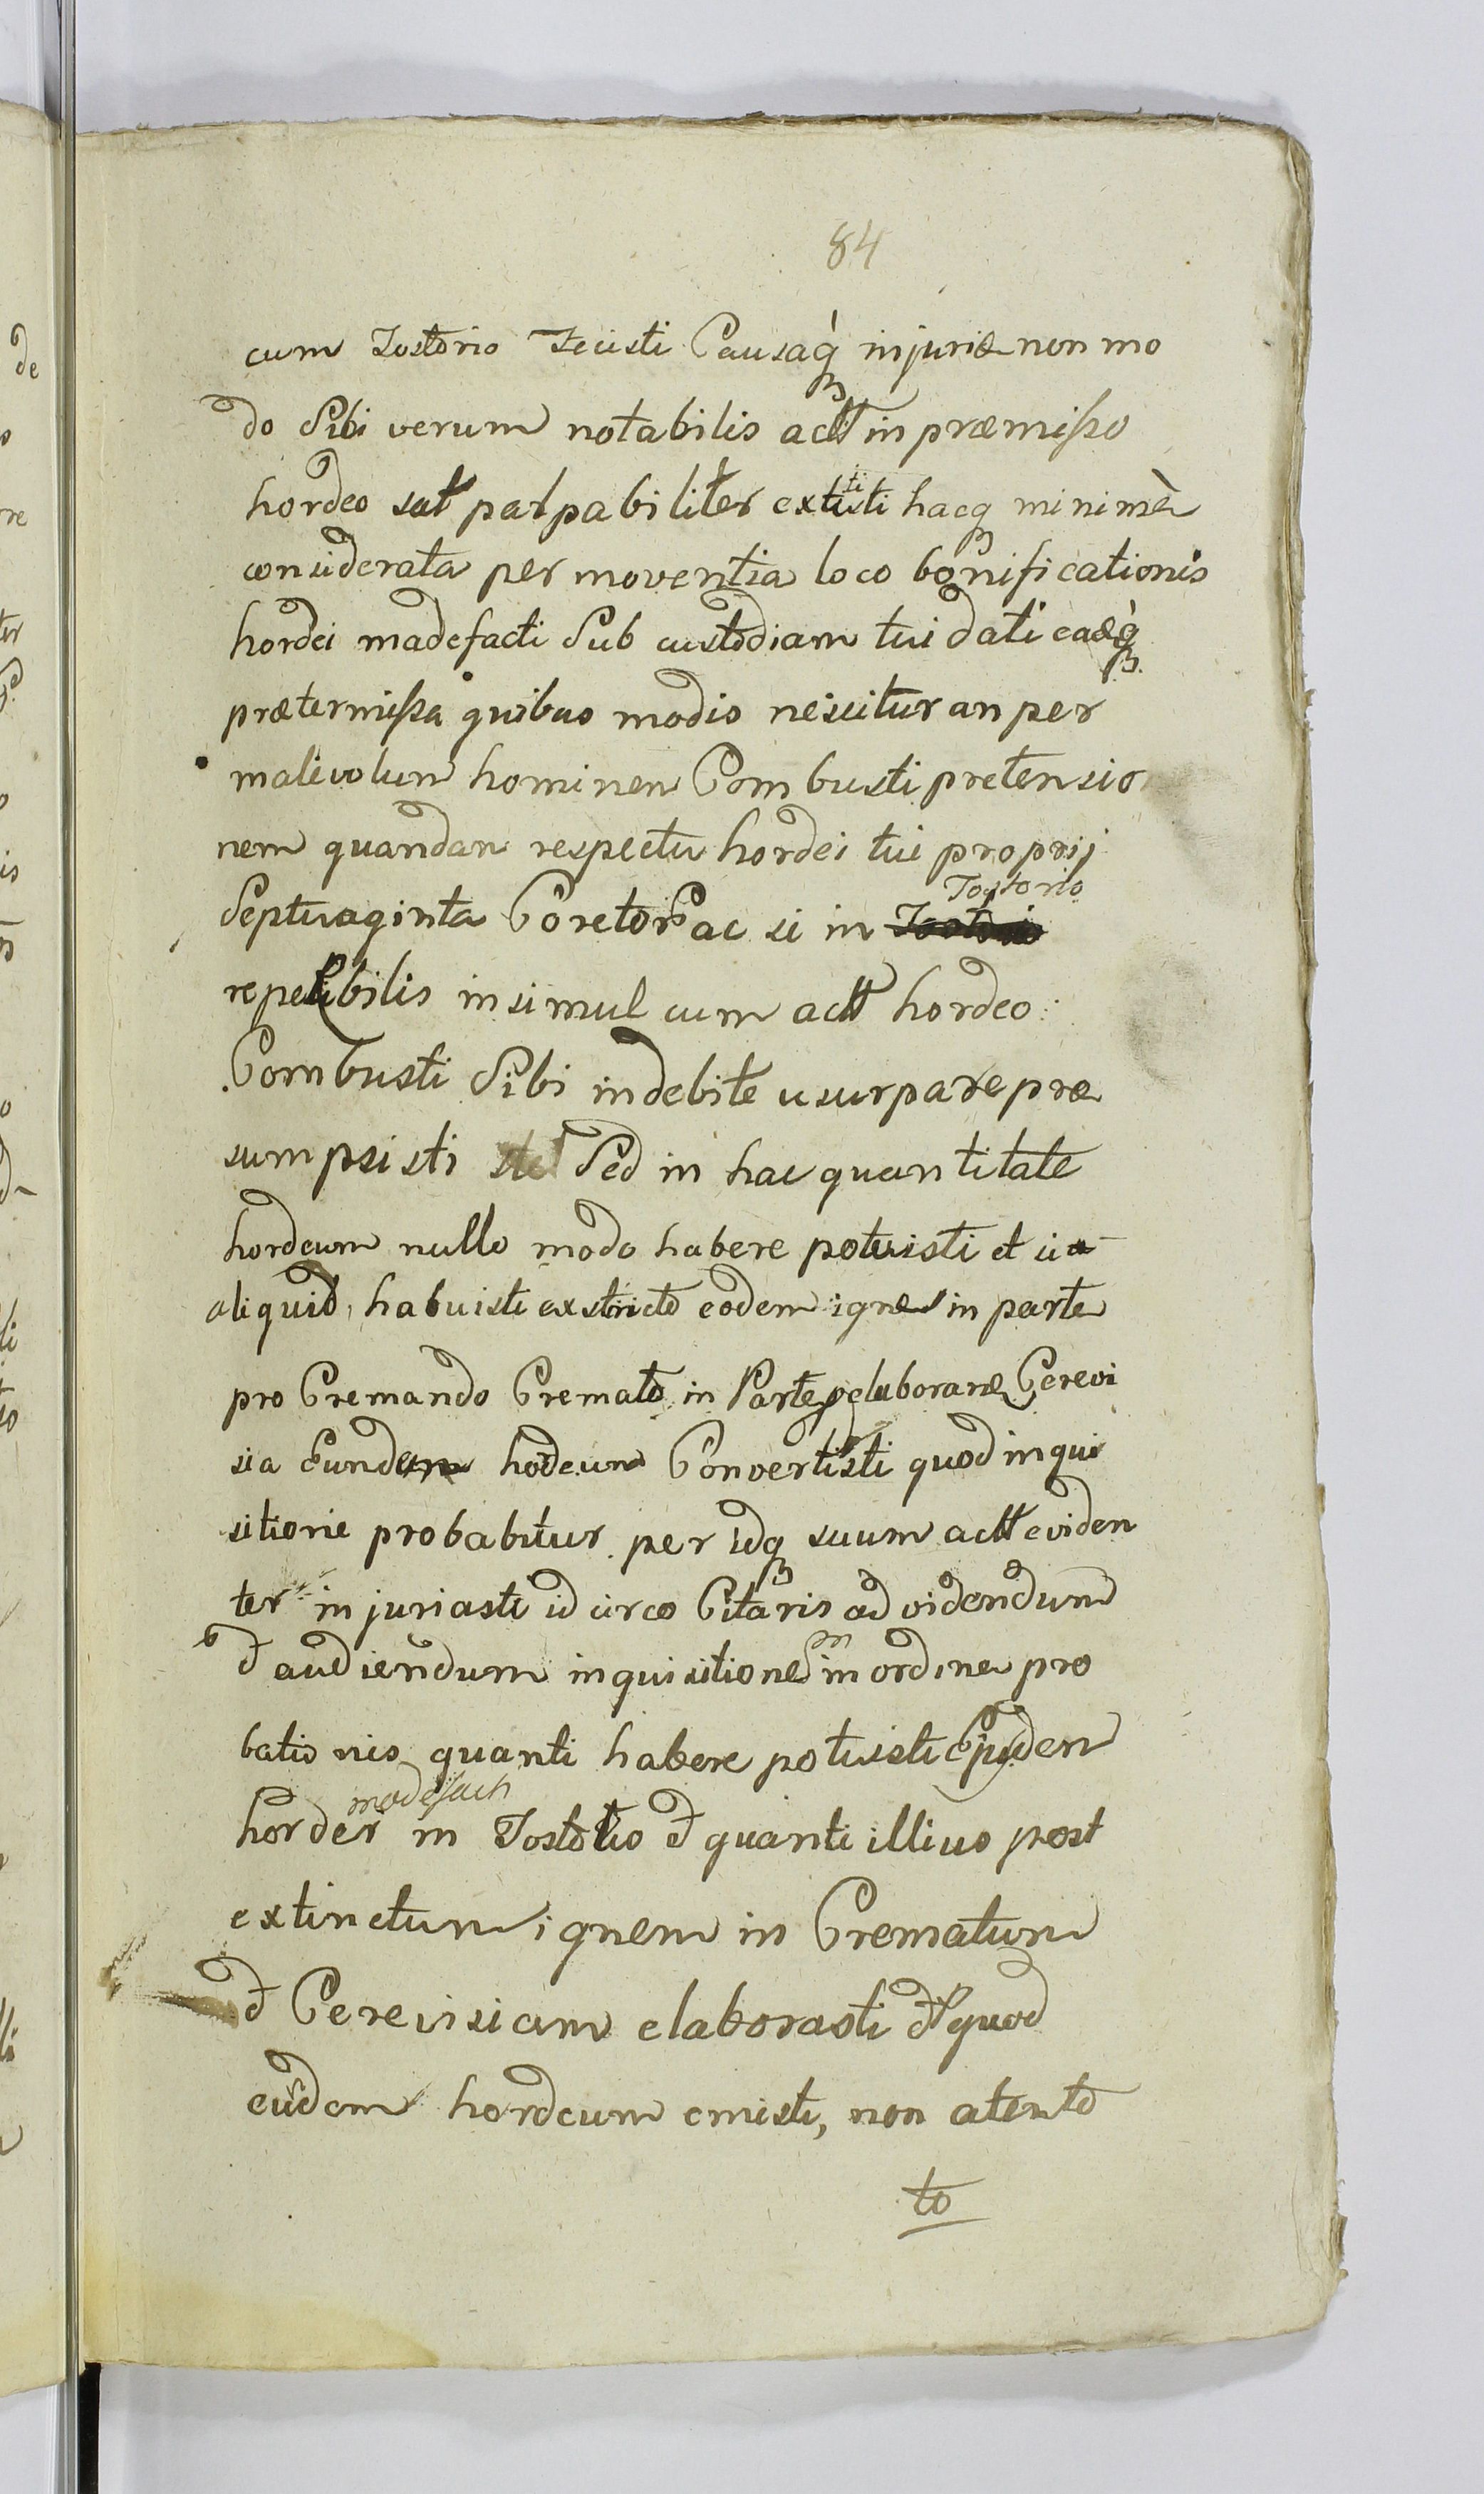 84
cum Tostorio Fecisti Causaq́ injuriæ non mo
do Sibi verum notabilis actt in præmisso
hordeo sat palpabiliter extitisti hacq minimè
considerata per moventia loco bonificationis
hordei madefacti Sub custodiam tui dati eaq́
prætermissa quibus modis nescitur an per
malivolum hominem Combusti pretensio
nem quandam respectu hordei tui proprij
Septuaginta Coretor ac si in Tostorio
repetibilis insimul cum actt hordeo
Combusti Sibi indebite usurpare præ
sumpsisti Sed in hac quantitate
hordeum nullo modo habere potuisti et si
aliquid habuisti exstincto eodem igne in parte
pro Cremando Cremato in Parte pro elaboranæ Cerevi
sia Eundem hordeum Convertisti quod inqui
sitione probabitur per idq suum actt eviden
ter injuriasti id circo Citaris ad videndum
et audiendum inquisitionem in ordine pro
bationis quanti habere potuisti Ejusdem
madefacti
hordei in Tostorio et quanti illius post
extinctum ignem in Crematum
et Cerevisiam elaborasti et quod
eundem hordeum emisti, non atento
to
de